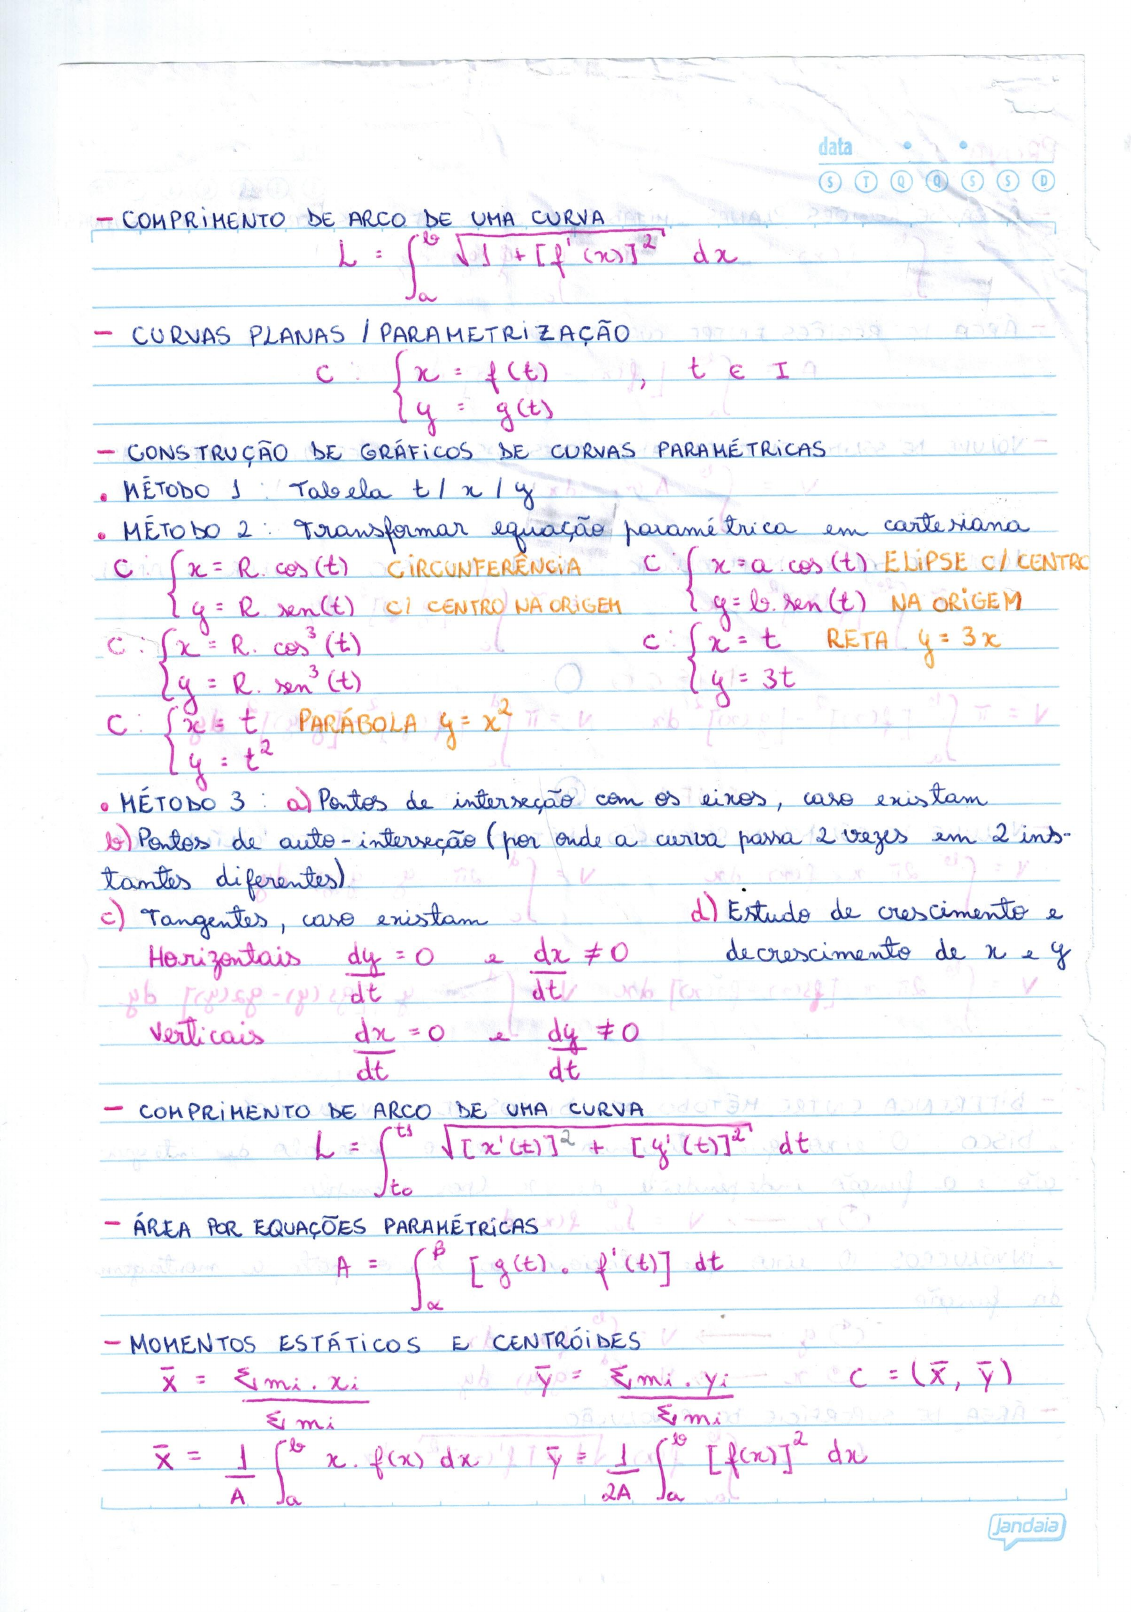 data
S T Q Q S S D
- COMPRIMENTO DE ARCO DE UMA CURVA
L = ∫_a^b √(1 + [f'(x)]²) dx
- CURVAS PLANAS / PARAMETRIZAÇÃO
C : { x = f(t) , t ∈ I
y = g(t)
- CONSTRUÇÃO DE GRÁFICOS DE CURVAS PARAMÉTRICAS
• MÉTODO 1 : Tabela t / x / y
• MÉTODO 2 : Transformar equação paramétrica em cartesiana
C : { x = R. cos(t) CIRCUNFERÊNCIA C : { x = a. cos(t) ELIPSE C/ CENTRO
y = R sen(t) C/ CENTRO NA ORIGEM y = b. sen(t) NA ORIGEM
C : { x = R. cos³(t) C : { x = t RETA y = 3x
y = R. sen³(t) y = 3t
C : { x = t PARÁBOLA y = x²
y = t²
• MÉTODO 3 : a) Pontos de interseção com os eixos, caso existam
b) Pontos de auto-interseção (por onde a curva passa 2 vezes em 2 ins-
tantes diferentes)
c) Tangentes, caso existam d) Estudo de crescimento e
Horizontais dy/dt = 0 e dx/dt ≠ 0 decrescimento de x e y
Verticais dx/dt = 0 e dy/dt ≠ 0
- COMPRIMENTO DE ARCO DE UMA CURVA
L = ∫_t0^t1 √([x'(t)]² + [y'(t)]²) dt
- ÁREA POR EQUAÇÕES PARAMÉTRICAS
A = ∫_α^β [g(t) . f'(t)] dt
- MOMENTOS ESTÁTICOS E CENTRÓIDES
x̄ = Σ mi . xi / Σ mi ȳ = Σ mi . yi / Σ mi C = (x̄, ȳ)
x̄ = 1/A ∫_a^b x. f(x) dx ȳ = 1/2A ∫_a^b [f(x)]² dx
Jandaia